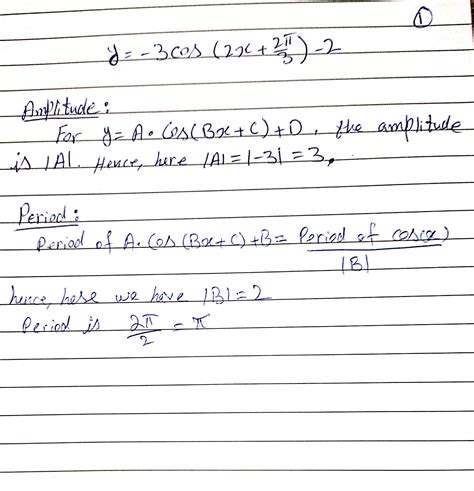 ①
y = -3cos (2x + 2π/3) - 2
Amplitude :
For y = A • Cos(Bx + C) + D , the amplitude
is |A|. Hence, here |A| = |-3| = 3,
Period :
Period of A. Cos (Bx + C) + B = Period of cos(x) / |B|
hence, here we have |B| = 2
Period is 2π/2 = π